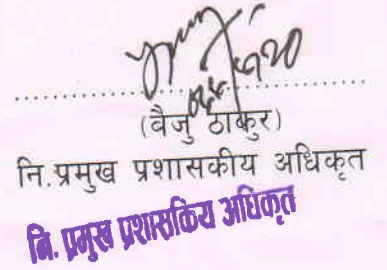 .......................................
(वैजु ठाकुर)
नि.प्रमुख प्रशासकीय अधिकृत
नि. प्रमुख प्रशासकिय अधिकृत